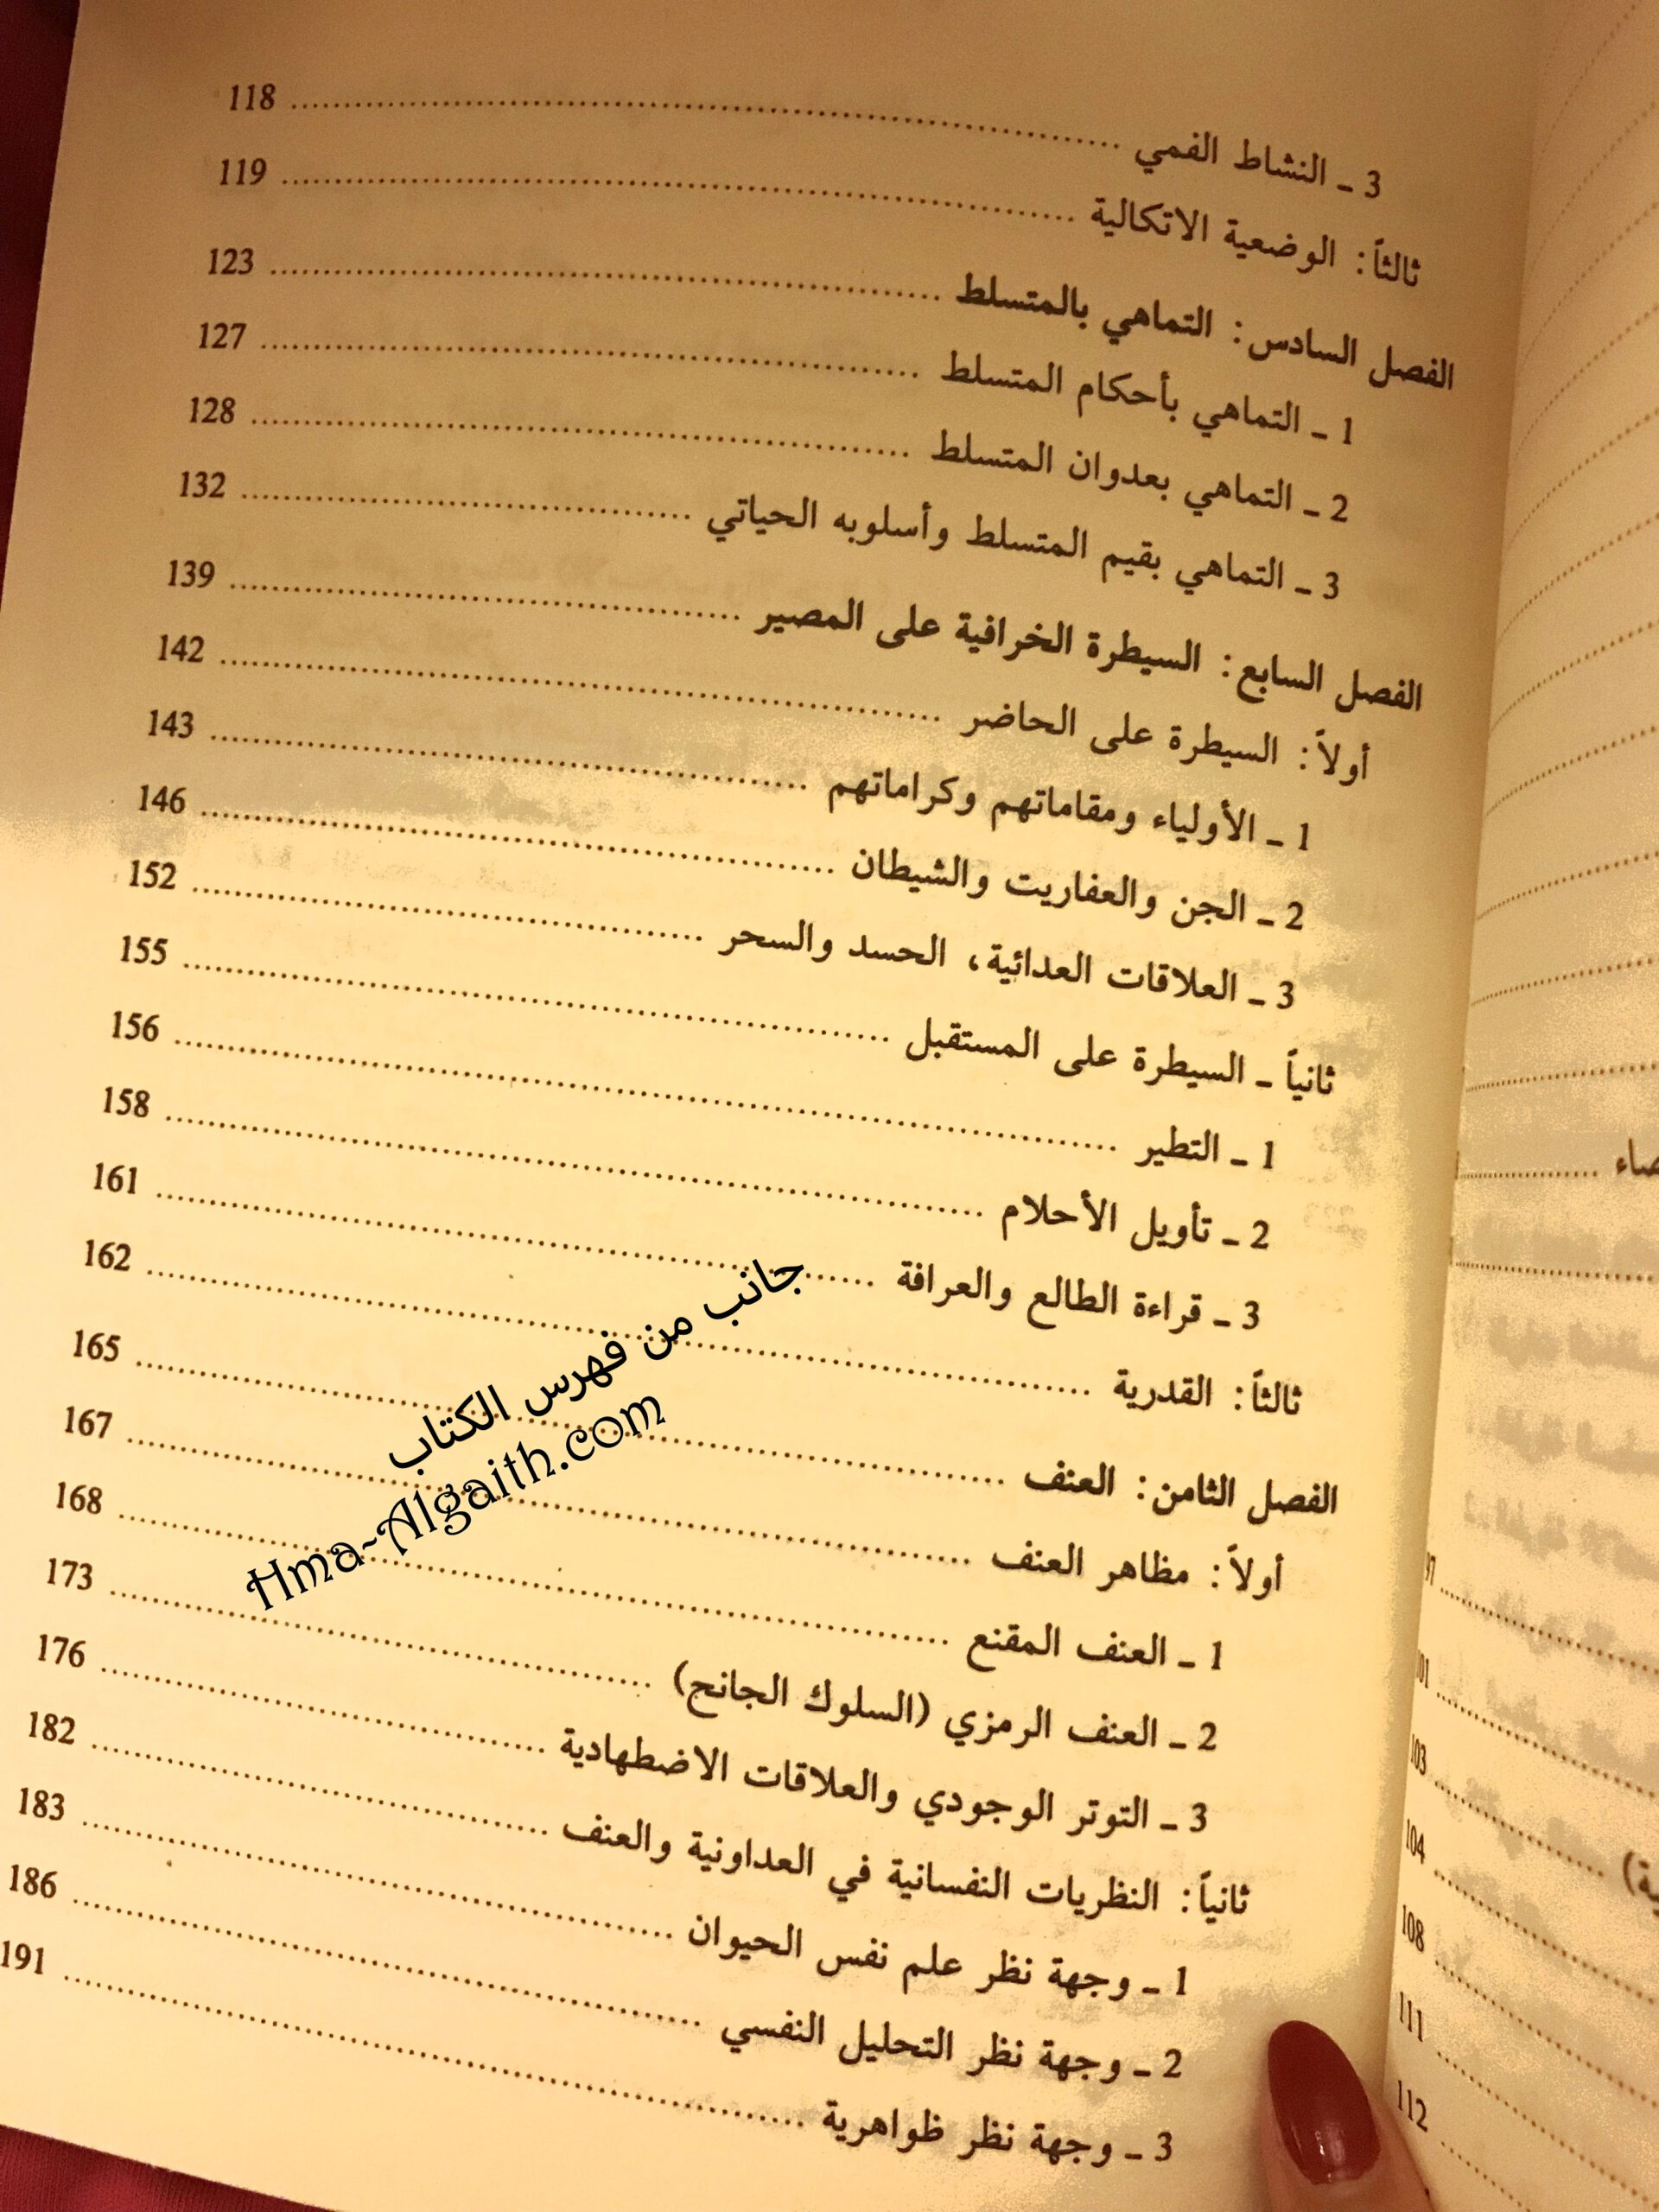 3 ـ النشاط الفمي ........ 118
ثالثاً: الوضعية الاتكالية ........ 119
الفصل السادس: التماهي بالمتسلط ........ 123
1 ـ التماهي بأحكام المتسلط ........ 127
2 ـ التماهي بعدوان المتسلط ........ 128
3 ـ التماهي بقيم المتسلط وأسلوبه الحياتي ........ 132
الفصل السابع: السيطرة الخرافية على المصير ........ 139
أولاً: السيطرة على الحاضر ........ 142
1 ـ الأولياء ومقاماتهم وكراماتهم ........ 143
2 ـ الجن والعفاريت والشيطان ........ 146
3 ـ العلاقات العدائية، الحسد والسحر ........ 152
ثانياً ـ السيطرة على المستقبل ........ 155
1 ـ التطير ........ 156
2 ـ تأويل الأحلام ........ 158
3 ـ قراءة الطالع والعرافة ........ 161
ثالثاً: القدرية ........ 162
الفصل الثامن: العنف ........ 165
أولاً: مظاهر العنف ........ 167
1 ـ العنف المقنع ........ 168
2 ـ العنف الرمزي (السلوك الجانح) ........ 173
3 ـ التوتر الوجودي والعلاقات الاضطهادية ........ 176
ثانياً: النظريات النفسانية في العداونية والعنف ........ 182
1 ـ وجهة نظر علم نفس الحيوان ........ 183
2 ـ وجهة نظر التحليل النفسي ........ 186
3 ـ وجهة نظر ظواهرية ........ 191
جانب من فهرس الكتاب
Hma~Algaith.com
97
101
103
104
108
111
112